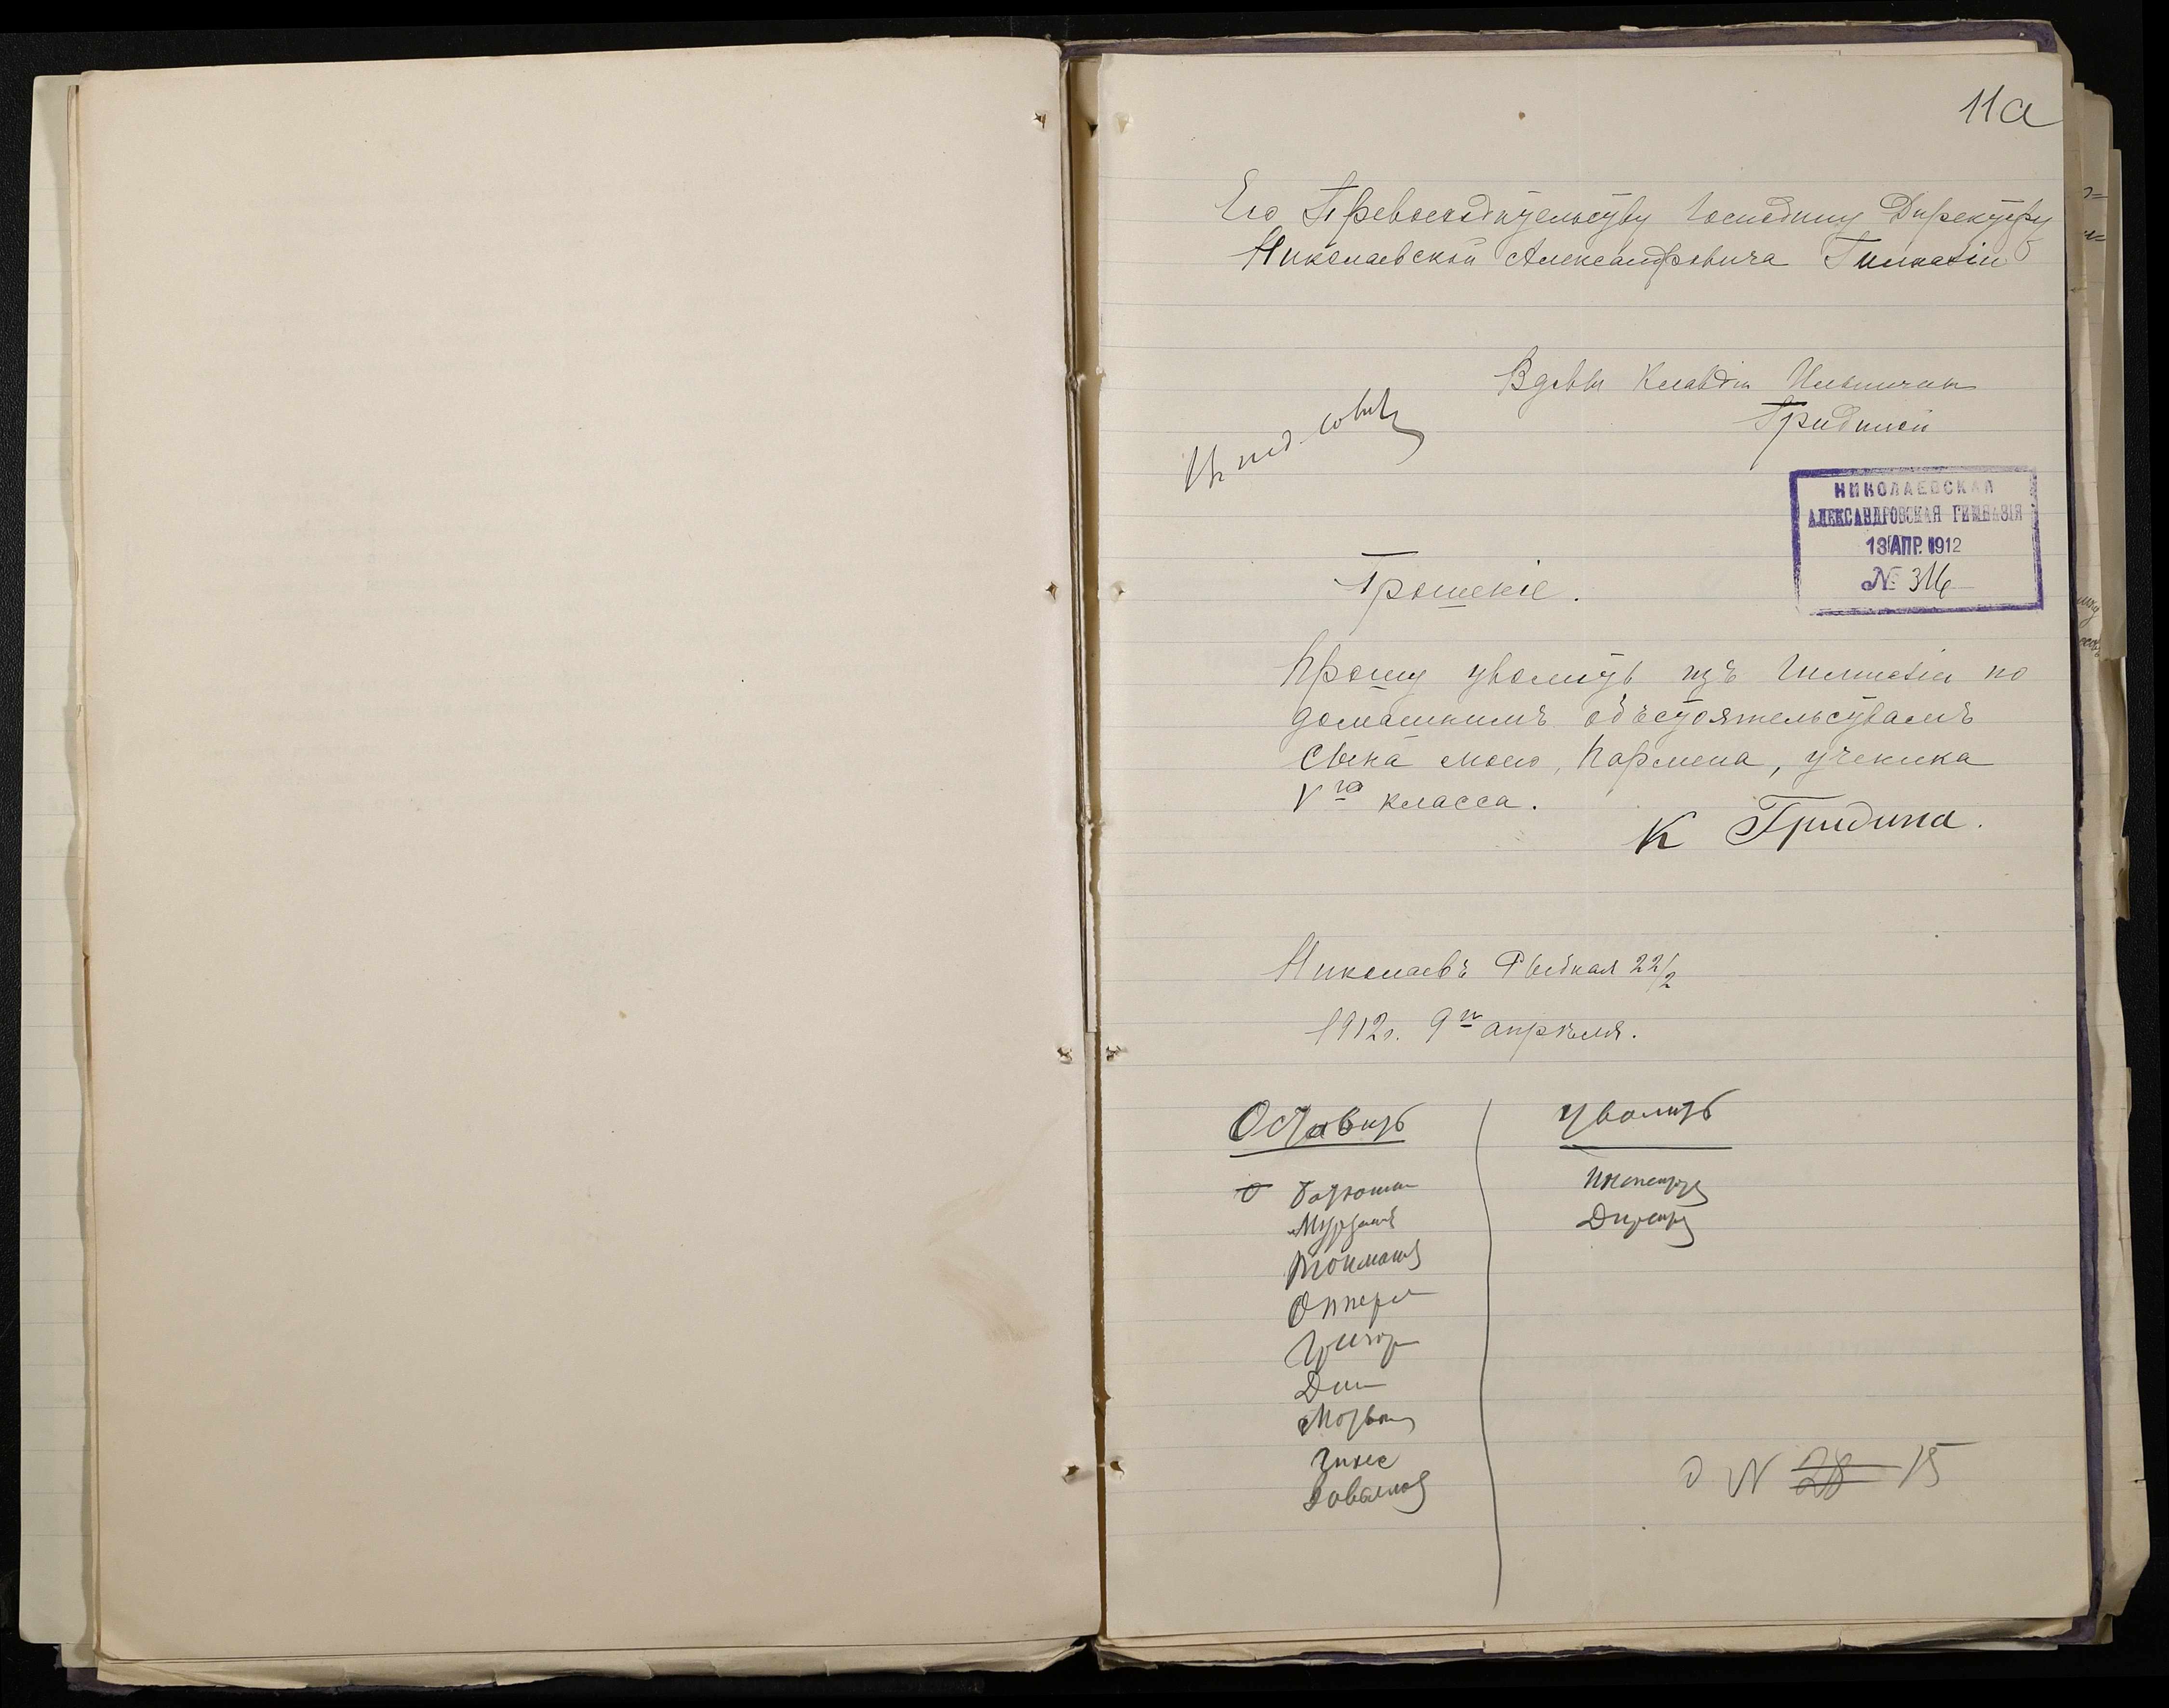 11а
Его Превосходительству Господину Директору
Николаевской Александровича Гимназіи
Вдовы Клавдіи Ильиничны
Гридиной
Въ пед. совѣтъ
НИКОЛАЕВСКАЯ
АЛЕКСАНДРОВСКАЯ ГИМНАЗІЯ
13 АПР. 1912
№ 316
Прошеніе.
Прошу уволить изъ Гимназіи по
домашнимъ объстоятельствамъ
сына моего, Пармена, ученика
V го класса.
К Гридина.
Николаевъ Рыбная 22/2
1912 г. 9 го апрѣля.
Оставить
уволить
о
Инспекторъ
Директоръ
N 28 15